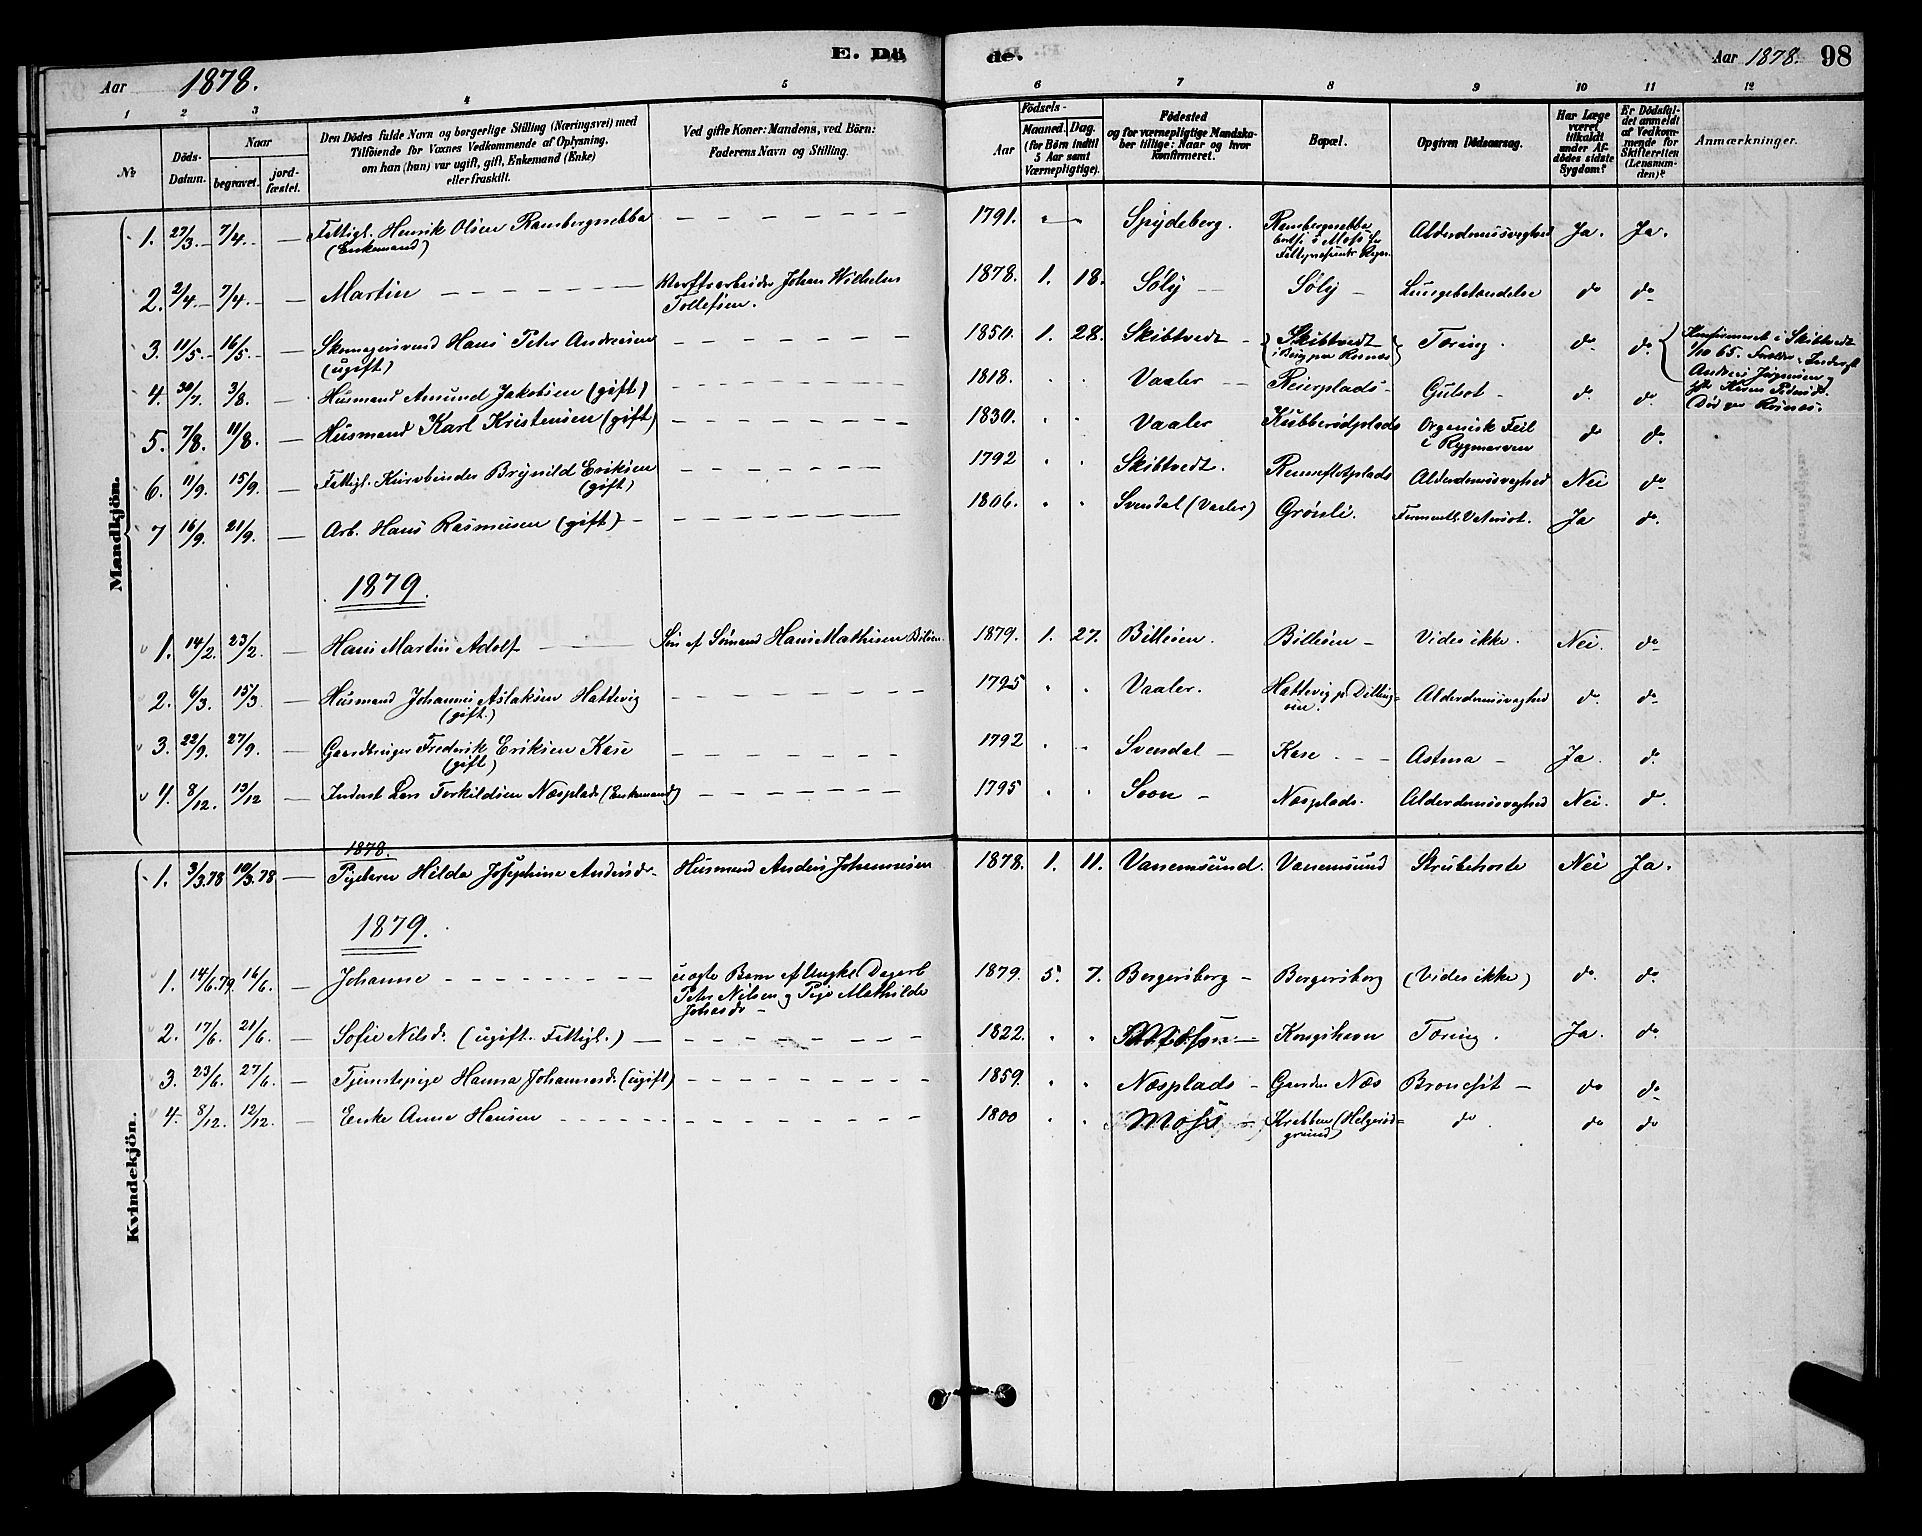 E. Dö de.
Aar 1878.
Aar 1878. 98
1 2 3 4 5 6 7 8 9 10 11 12
No
Döds-Datum.
Naar
begravet.
jord-fæstet.
Den Dödes fulde Navn og borgerlige Stilling (Næringsvei) med
Tilföiende for Voxnes Vedkommende af Oplysning,
om han (hun) var ugift, gift, Enkemand (Enke)
eller fraskilt.
Ved gifte Koner: Mandens, ved Börn:
Faderens Navn og Stilling.
Födsels-
Aar
Maaned. Dag.
(for Börn indtil
5 Aar samt
Værnepligtige).
Födested
og for værnepligtige Mandska-
ber tillige: Naar og hvor
konfirmeret.
Bopæl.
Opgiven Dödsaarsag.
Har Læge
været
tilkaldt
under Af-
dödes sidste
Sygdom?
Er Dödsfal-
det anmeldt
af Vedkom-
mende for
Skifteretten
(Lensman-
den)?
Anmærkninger.
Mandkjön.
1. 27/3. 7/4. — Fattigl. Henrik Olsen Rambergsebba (Enkemand) — 1791. Spydeberg. Rambergsebba Alderdomssvaghed Ja. Ja.
2. 2/4. 7/4. — Martin — Værftsarbeider Johan Wilhelm Tollefsen. 1878. 1. 18. Sølj — Sølj — Lungebetændelse do do
3. 11/5. 16/5. — Skomagersvend Hans Peter Andresen (ugift) — 1850. 1. 28. Skibtvedt — Skibtvedt Tæring. do. do. Konfirmeret i Skibtvedt 1/10 65.
4. 30/7. 3/8. — Husmand Amund Jakobsen (gift) — 1818. Vaaler — Reierplads — Gulsot — do. do.
5. 7/8. 11/8. — Husmand Karl Kristensen (gift) — 1830. Vaaler Kubberødplads Organisk Feil i Rygmarven do do.
6. 11/9. 15/9. — Fattigl. Kurvbinder Brynild Eriksen (gift) — 1792 Skibtvedt. Alderdomssvaghed Nei do.
7 16/9. 21/9. — Arb. Hans Rasmussen (gift) — 1806. Svendal (Vaaler) Grønli. Ja do.
1879.
1. 14/2. 23/2. — Hans Martin Adolf — Søn af Sømand Hans Mathisen 1879. 1. 27. Billiøen. Billiøen — Vides ikke. Nei. do
2. 6/3. 15/3. — Husmand Johannes Aslaksen Hattevig (gift.) — 1795 Vaaler. Hattevig p. Dillingøen. Alderdomssvaghed do. do
3. 22/9. 27/9. — Gaardbruger Frederik Eriksen Kase (gift) — 1792 Svendal — Kase — Astma — Ja. do.
4. 8/12. 13/12 — Inderst Lars Torkildsen Næsplads (Enkemand) — 1795 Soon — Næsplads. Alderdomssvaghed Nei. do.
Kvindekjön.
1878.
1. 3/3. 78 10/3. 78 — Pigebarn Hilda Josephine Andersdr. Husmand Anders Johannesen 1878. 1. 11. Vanemsund. Vanemsund Strubehoste Nei Ja.
1879.
1. 14/6. 79. 16/6. — Johanne — uægte Barn af Ungk. Dagarb. Peter Nilsen og Pige Mathilde 1879. 5. 7. Bergersborg — Bergersborg (Vides ikke) do. do.
2. 17/6. 21/6. — Sofie Nilsdr. (ugift. Fattigl.) — 1822. Kongshavn Tæring. Ja. do.
3. 23/6. 27/6. — Tjenestepige Hanna Johannesdr. (ugift) — 1859. Næsplads — Gaarden Næs Bronchit — do do
4. 8/12. 12/12. — Enke Anne Hansen — 1800 Moss — Krabben (Helgerødgrund) do. do do